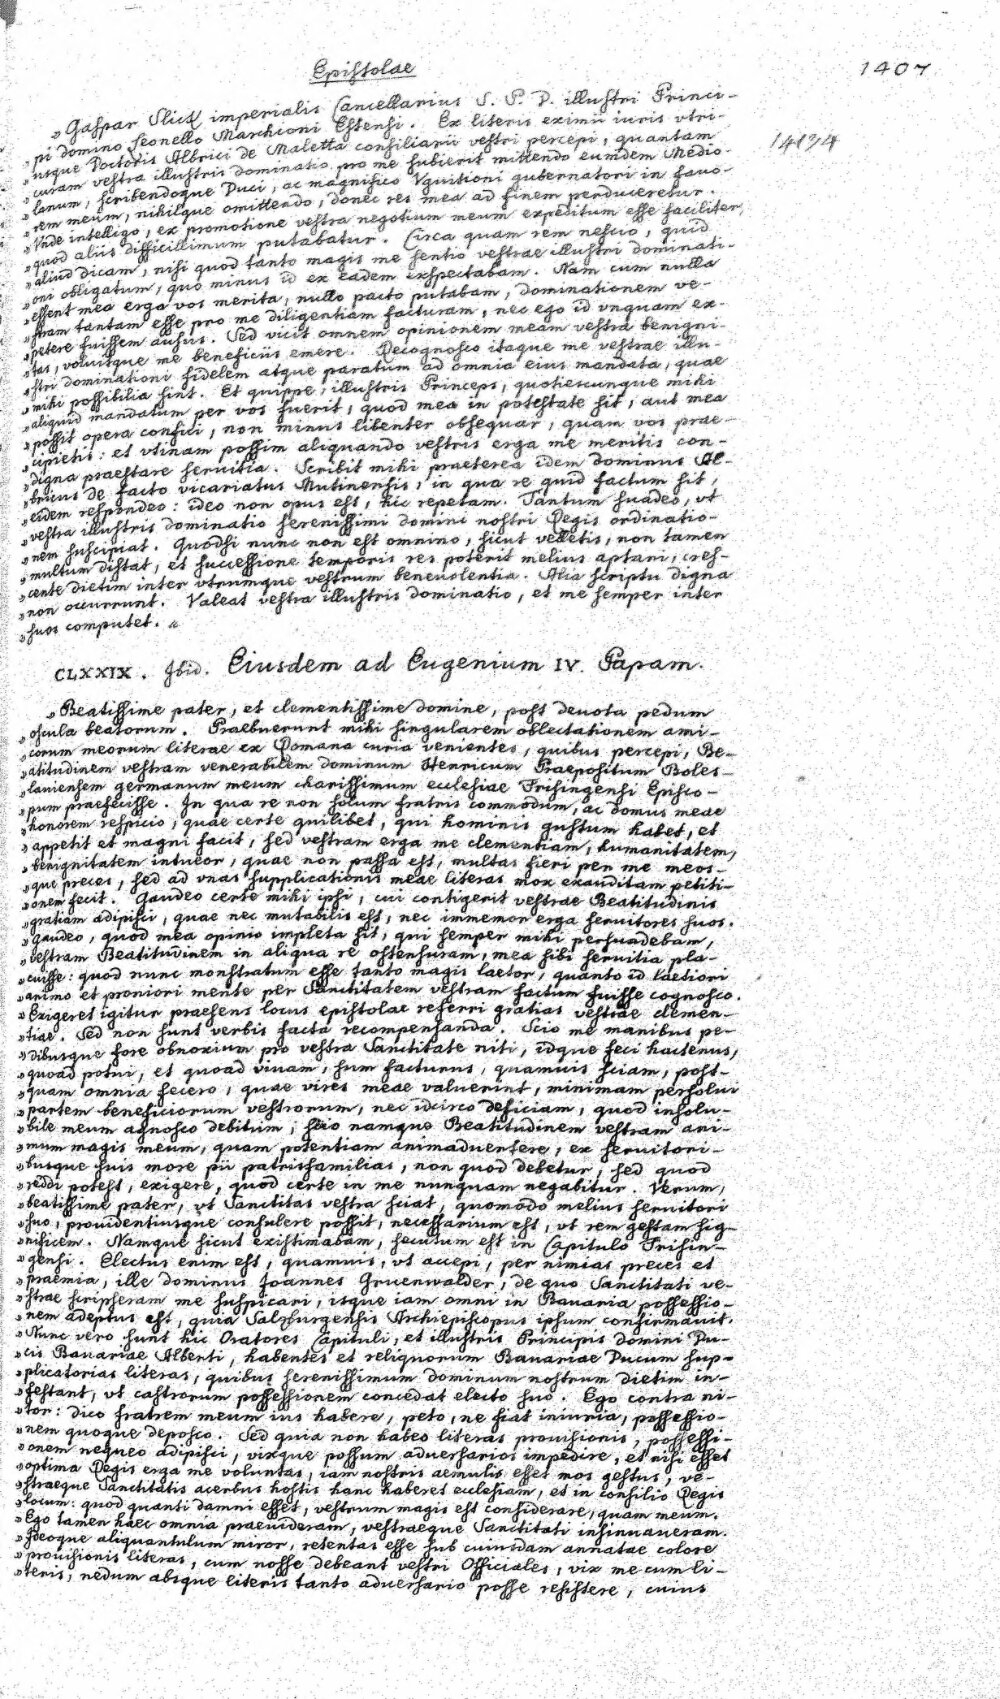 Epistolae
1407
1434
„Gaspar Slick imperialis Cancellarius S. P. D. illustri Princi-
„pi domino Leonello Marchioni Estensi. Ex literis eximii iuris vtri-
„usque Doctoris Albrici de Maletta consiliarii vestri percepi, quantam
„curam vestra illustris dominatio pro me subierit mittendo eumdem Medio-
„lanum, scribendoque Duci, ac magnifico Vguitioni gubernatori in fauo-
„rem meum, nihilque omittendo, donec res mea ad finem perduceretur.
„Vnde intelligo, ex promotione vestra negotium meum expeditum esse faciliter,
„quod aliis difficillimum putabatur. Circa quam rem nescio, quid
„aliud dicam, nisi quod tanto magis me sentio vestrae illustri dominati-
„oni obligatum, quo minus id ex eadem exspectabam. Nam cum nulla
„essent mea erga vos merita, nullo pacto putabam, dominationem ve-
„stram tantam esse pro me diligentiam facturam, nec ego id vnquam ex-
„petere fuissem ausus. Sed vicit omnem opinionem meam vestra benigni-
„tas, voluitque me beneficiis emere. Recognosco itaque me vestrae illu-
„stri dominationi fidelem atque paratum ad omnia eius mandata, quae
„mihi possibilia sint. Et quippe, illustris Princeps, quotiescunque mihi
„aliquid mandatum per vos fuerit, quod mea in potestate sit, aut mea
„possit opera confici, non minus libenter obsequar, quam vos prae-
„cipietis: et vtinam possim aliquando vestris erga me meritis con-
„digna praestare seruitia. Scribit mihi praeterea idem dominus Al-
„bricus de facto vicariatus Mutinensis, in qua re quid factum sit,
„eidem respondeo: ideo non opus est, hic repetam. Tantum suadeo, vt
„vestra illustris dominatio serenissimi domini nostri Regis ordinatio-
„nem suscipiat. Quodsi nunc non est omnino, sicut velletis, non tamen
„multum distat, et successione temporis res poterit melius aptari, cres-
„cente dietim inter vtrumque vestrum beneuolentia. Alia scriptu digna
„non occurrunt. Valeat vestra illustris dominatio, et me semper inter
„suos computet. „
CLXXIX. Ibid. Eiusdem ad Eugenium IV. Papam.
„Beatissime pater, et clementissime domine, post deuota pedum
„oscula beatorum. Praebuerunt mihi singularem oblectationem ami-
„corum meorum literae ex Romana curia venientes, quibus percepi, Be-
„atitudinem vestram venerabilem dominum Henricum Praepositum Boles-
„lauiensem germanum meum charissimum ecclesiae Frisingensi Episco-
„pum praefecisse. In qua re non solum fratris commodum, ac domus meae
„honorem respicio, quae certe quilibet, qui hominis gustum habet, et
„appetit et magni facit, sed vestram erga me clementiam, humanitatem,
„benignitatem intueor, quae non passa est, multas fieri per me meos-
„que preces, sed ad vnas supplicationis meae literas mox exauditam petiti-
„onem fecit. Gaudeo certe mihi ipsi, cui contigerit vestrae Beatitudinis
„gratiam adipisci, quae nec mutabilis est, nec immemor erga seruitores suos.
„Gaudeo, quod mea opinio impleta sit, qui semper mihi persuadebam,
„vestram Beatitudinem in aliqua re ostensuram, mea sibi seruitia pla-
„cuisse: quod nunc monstratum esse tanto magis laetor, quanto id laetiori
„animo et proniori mente per Sanctitatem vestram factum fuisse cognosco.
„Exigeret igitur praesens locus epistolae referri gratias vestrae clemen-
„tiae. Sed non sunt verbis facta recompensanda. Scio me manibus pe-
„dibusque fore obnoxium pro vestra Sanctitate niti, idque feci hactenus,
„quoad potui, et quoad viuam, sum facturus, quamuis sciam, post-
„quam omnia fecero, quae vires meae valuerint, minimam persolui
„partem beneficiorum vestrorum, nec idcirco deficiam, quod insolu-
„bile meum agnosco debitum; scio namque Beatitudinem vestram ani-
„mum magis meum, quam potentiam animaduertere, ex seruitori-
„busque suis more pii patrisfamilias, non quod debetur, sed quod
„reddi potest, exigere, quod certe in me nunquam negabitur. Verum,
„beatissime pater, vt Sanctitas vestra sciat, quomodo melius seruitori
„suo, prouidentiusque consulere possit, necessarium est, vt rem gestam sig-
„nificem. Namque sicut existimabam, secutum est in Capitulo Frisin-
„gensi. Electus enim est, quamuis, vt accepi, per nimias preces et
„praemia, ille dominus Joannes Gruenwalder, de quo Sanctitati ve-
„strae scripseram me suspicari, isque iam omni in Bauaria possessio-
„nem adeptus est, quia Salzburgensis Archiepiscopus ipsum confirmauit.
„Nunc vero sunt hic Oratores Capituli, et illustris Principis domini Du-
„cis Bauariae Alberti, habentes et reliquorum Bauariae Ducum sup-
„plicatorias literas, quibus serenissimum dominum nostrum dietim in-
„festant, vt castrorum possessionem concedat electo suo. Ego contra ni-
„tor: dico fratrem meum ius habere, peto, ne fiat iniuria, possessio-
„nem quoque deposco. Sed quia non habeo literas prouisionis, possessi-
„onem nequeo adipisci, vixque possum aduersarios impedire, et nisi esset
„optima Regis erga me voluntas, iam nostris aemulis esset mos gestus, ve-
„straeque Sanctitatis acerbus hostis hanc haberet ecclesiam, et in consilio Regis
„locum: quod quanti damni esset, vestrum magis est considerare, quam meum.
„Ego tamen haec omnia praeuideram, vestraeque Sanctitati insinuaueram.
„Ideoque aliquantulum miror, retentas esse sub cuiusdam annatae colore
„prouisionis literas, cum nosse debeant vestri Officiales, vix me cum li-
„teris, nedum absque literis tanto aduersario posse resistere, cuius